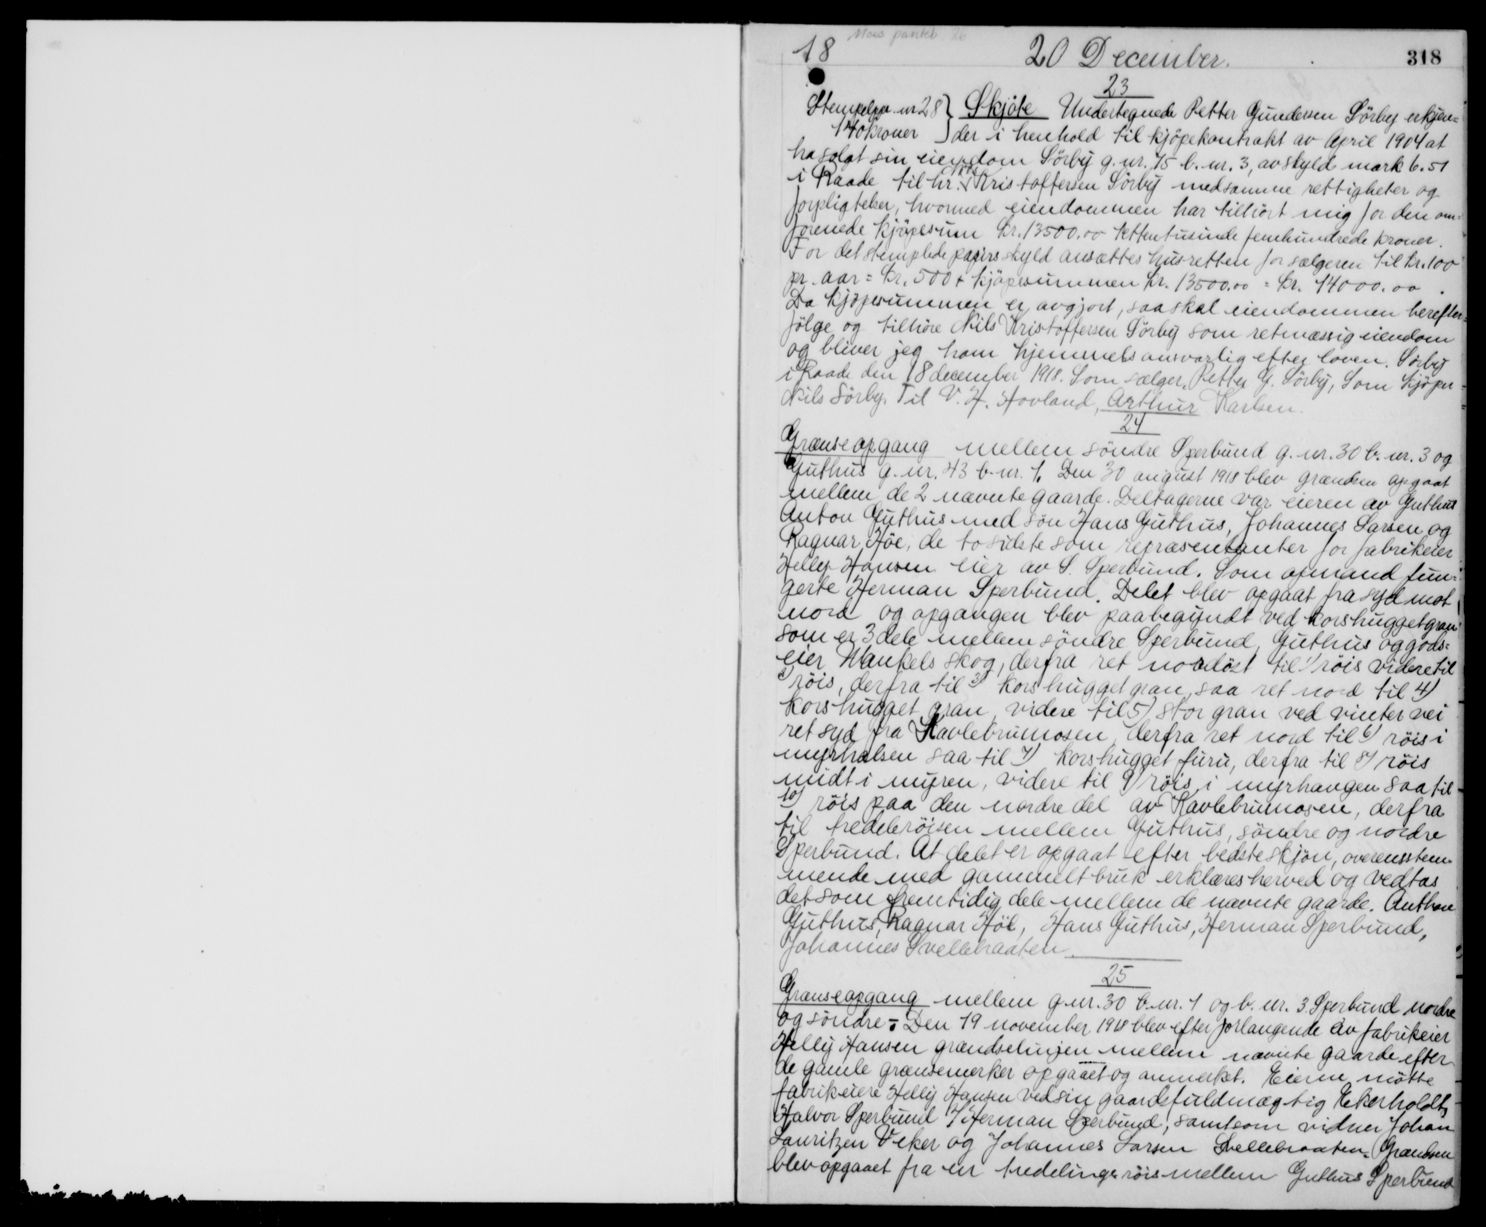 18 20 December. 318
23
Stempelpp. nr 28 } Skjøte Undertegnede Petter Gundersen Sörby erkjen=
140 kroner } der i henhold til kjöpekontrakt av April 1904 at
ha solgt sin eiendom Sörby g. nr. 15 b. nr. 3, av skyld mark 6.51
i Raade til hr. Nils Kristoffersen Sörby med samme rettigheter og
forpligtelser, hvormed eiendommen har tilhört mig for den om=
forenede kjöpesum kr. 13500.00 tettentusinde femhundrede kroner.
For det stemplede papirs skyld ansættes husretten for sælgeren til kr. 100
pr. aar = kr. 500 + kjöpesummen kr. 13500.00 = kr. 14000.00.
Da kjöpesummen er avgjort, saa skal eiendommen herefter=
følge og tilhöre Nils Kristoffersen Sörby som retmæssig eiendom
og bliver jeg ham hjemmelsansvarlig efter loven. Sörby
i Raade den 18 december 1918. Som sælger, Petter G. Sörby, Som kjöper
Nils Sörby. Til V. H. Hovland, Arthur Karlsen.
24
Grænseopgang mellem söndre Sperbund g. nr. 30 b. nr. 3 og
Guthus g. nr. 43 b. nr. 1. Den 30 august 1918 blev grændsen opgaat
mellem de 2 nævnte gaarde. Deltagerne var eieren av Guthus
Anton Guthus med sön Hans Guthus, Johannes Larsen og
Ragnar Höe, de to sidste som repræsentanter for fabrikeier
Helly Hansen eier av S. Sperbund. Som opmand fun=
gerte Herman Sperbund. Delet blev opgaat fra syd mot
nord og opgangen blev paabegyndt ved korshugget gran
som er 3 dele mellem söndre Sperbund, Guthus og gods=
eier Wankels skog, derfra ret nordöst til 1) röis videre til
2) röis, derfra til 3) korshugget gran, saa ret nord til 4)
korshugget gran, videre til 5) stor gran ved vintervei
ret syd fra Kavlebrumosen, derfra ret nord til 6) röis i
myrhalsen saa til 7) korshugget furu, derfra til 8) röis
midt i myren, videre til 9) röis i myrhangen saa til
10) röis paa den nordre del av Kavlebrumosen, derfra
til tredeleröisen mellem Guthus, söndre og nordre
Sperbund. At delet er opgaat efter bedste skjön, overensstem=
mende med gammelt bruk erklæres herved og vedtas
det som fremtidig dele mellem de nævnte gaarde. Anthon
Guthus, Ragnar Höe, Hans Guthus, Herman Sperbund,
Johannes Svellebraaten.
25
Grænseopgang mellem g. nr. 30 b. nr. 1 og b. nr. 3 Sperbund nordre
og söndre. Den 19 november 1918 blev efter forlangende av fabrikeier
Helly Hansen grændselinjen mellem nævnte gaarde efter
de gamle grænsemerker opgaaet og anmerket. Eierne mötte
fabrikeiere Helly Hansen ved sin gaardsfuldmægtig Ekerholdt,
Halvor Sperbund v/ Herman Sperbund, samt som vidner Johan
Lauritzen Veker og Johannes Larsen Svellebraaten. Grændsen
blev opgaaet fra en tredelingsröis mellem Guthus Sperbund